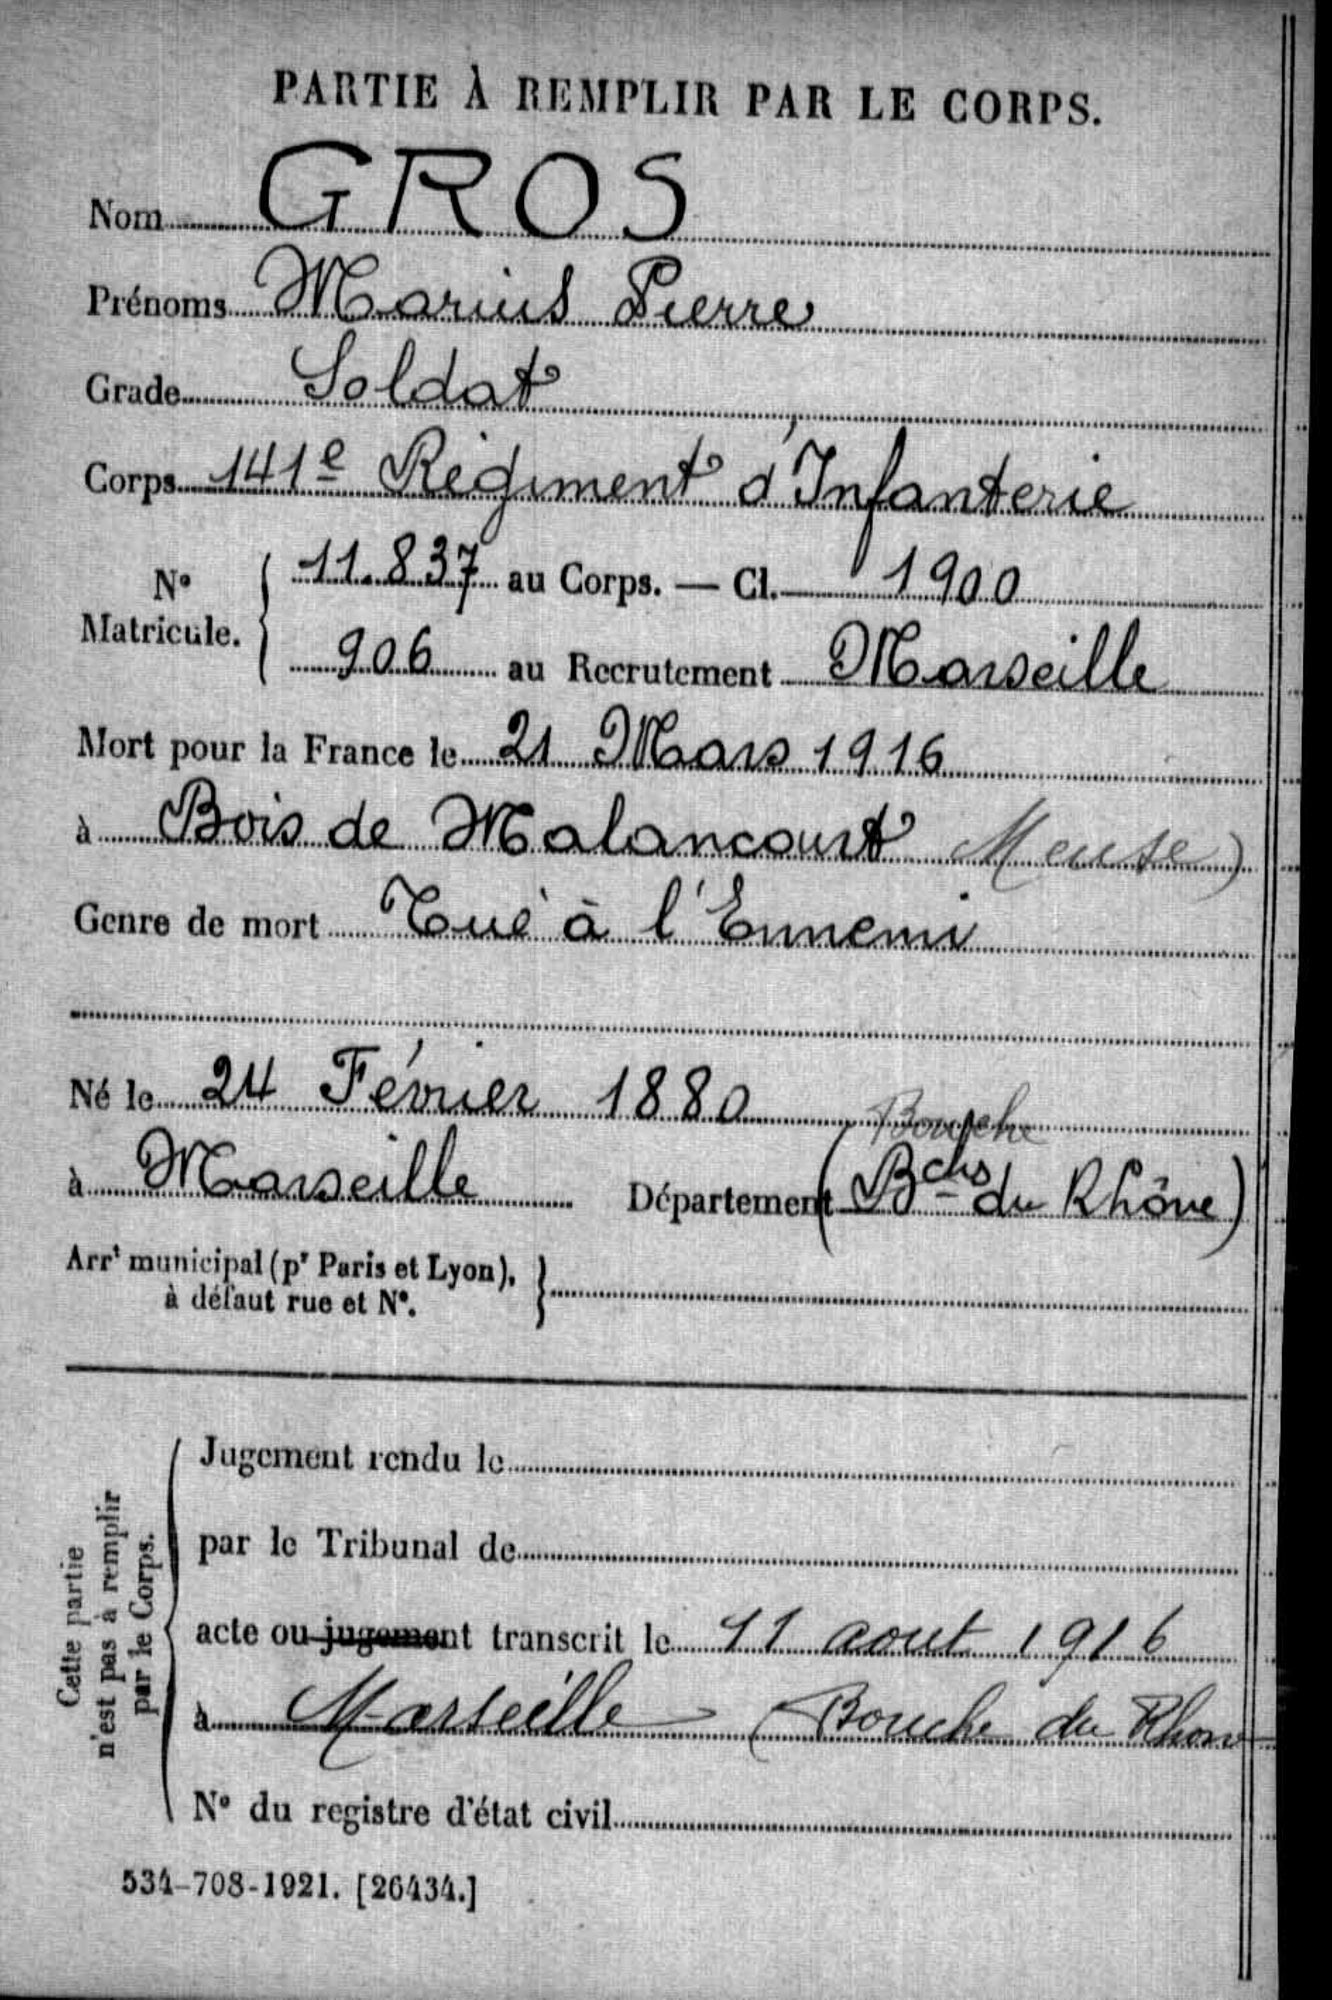 PARTIE À REMPLIR PAR LE CORPS.
Nom GROS
Prénoms Marius Pierre
Grade Soldat
Corps 141e Régiment d'Infanterie
N° Matricule. 11.837 au Corps. — Cl. 1900
906 au Recrutement Marseille
Mort pour la France le 21 Mars 1916
à Bois de Malancourt Meuse)
Genre de mort Tué à l'Ennemi
Né le 24 Février 1880
Bouche
à Marseille Département (Bches du Rhône)
Arrt municipal (pr Paris et Lyon),
à défaut rue et N°.
Cette partie
n'est pas à remplir
par le Corps.
Jugement rendu le
par le Tribunal de
acte ou jugement transcrit le 11 aout 1916
à Marseille (Bouche du Rhone
N° du registre d'état civil
534-708-1921. [26434.]